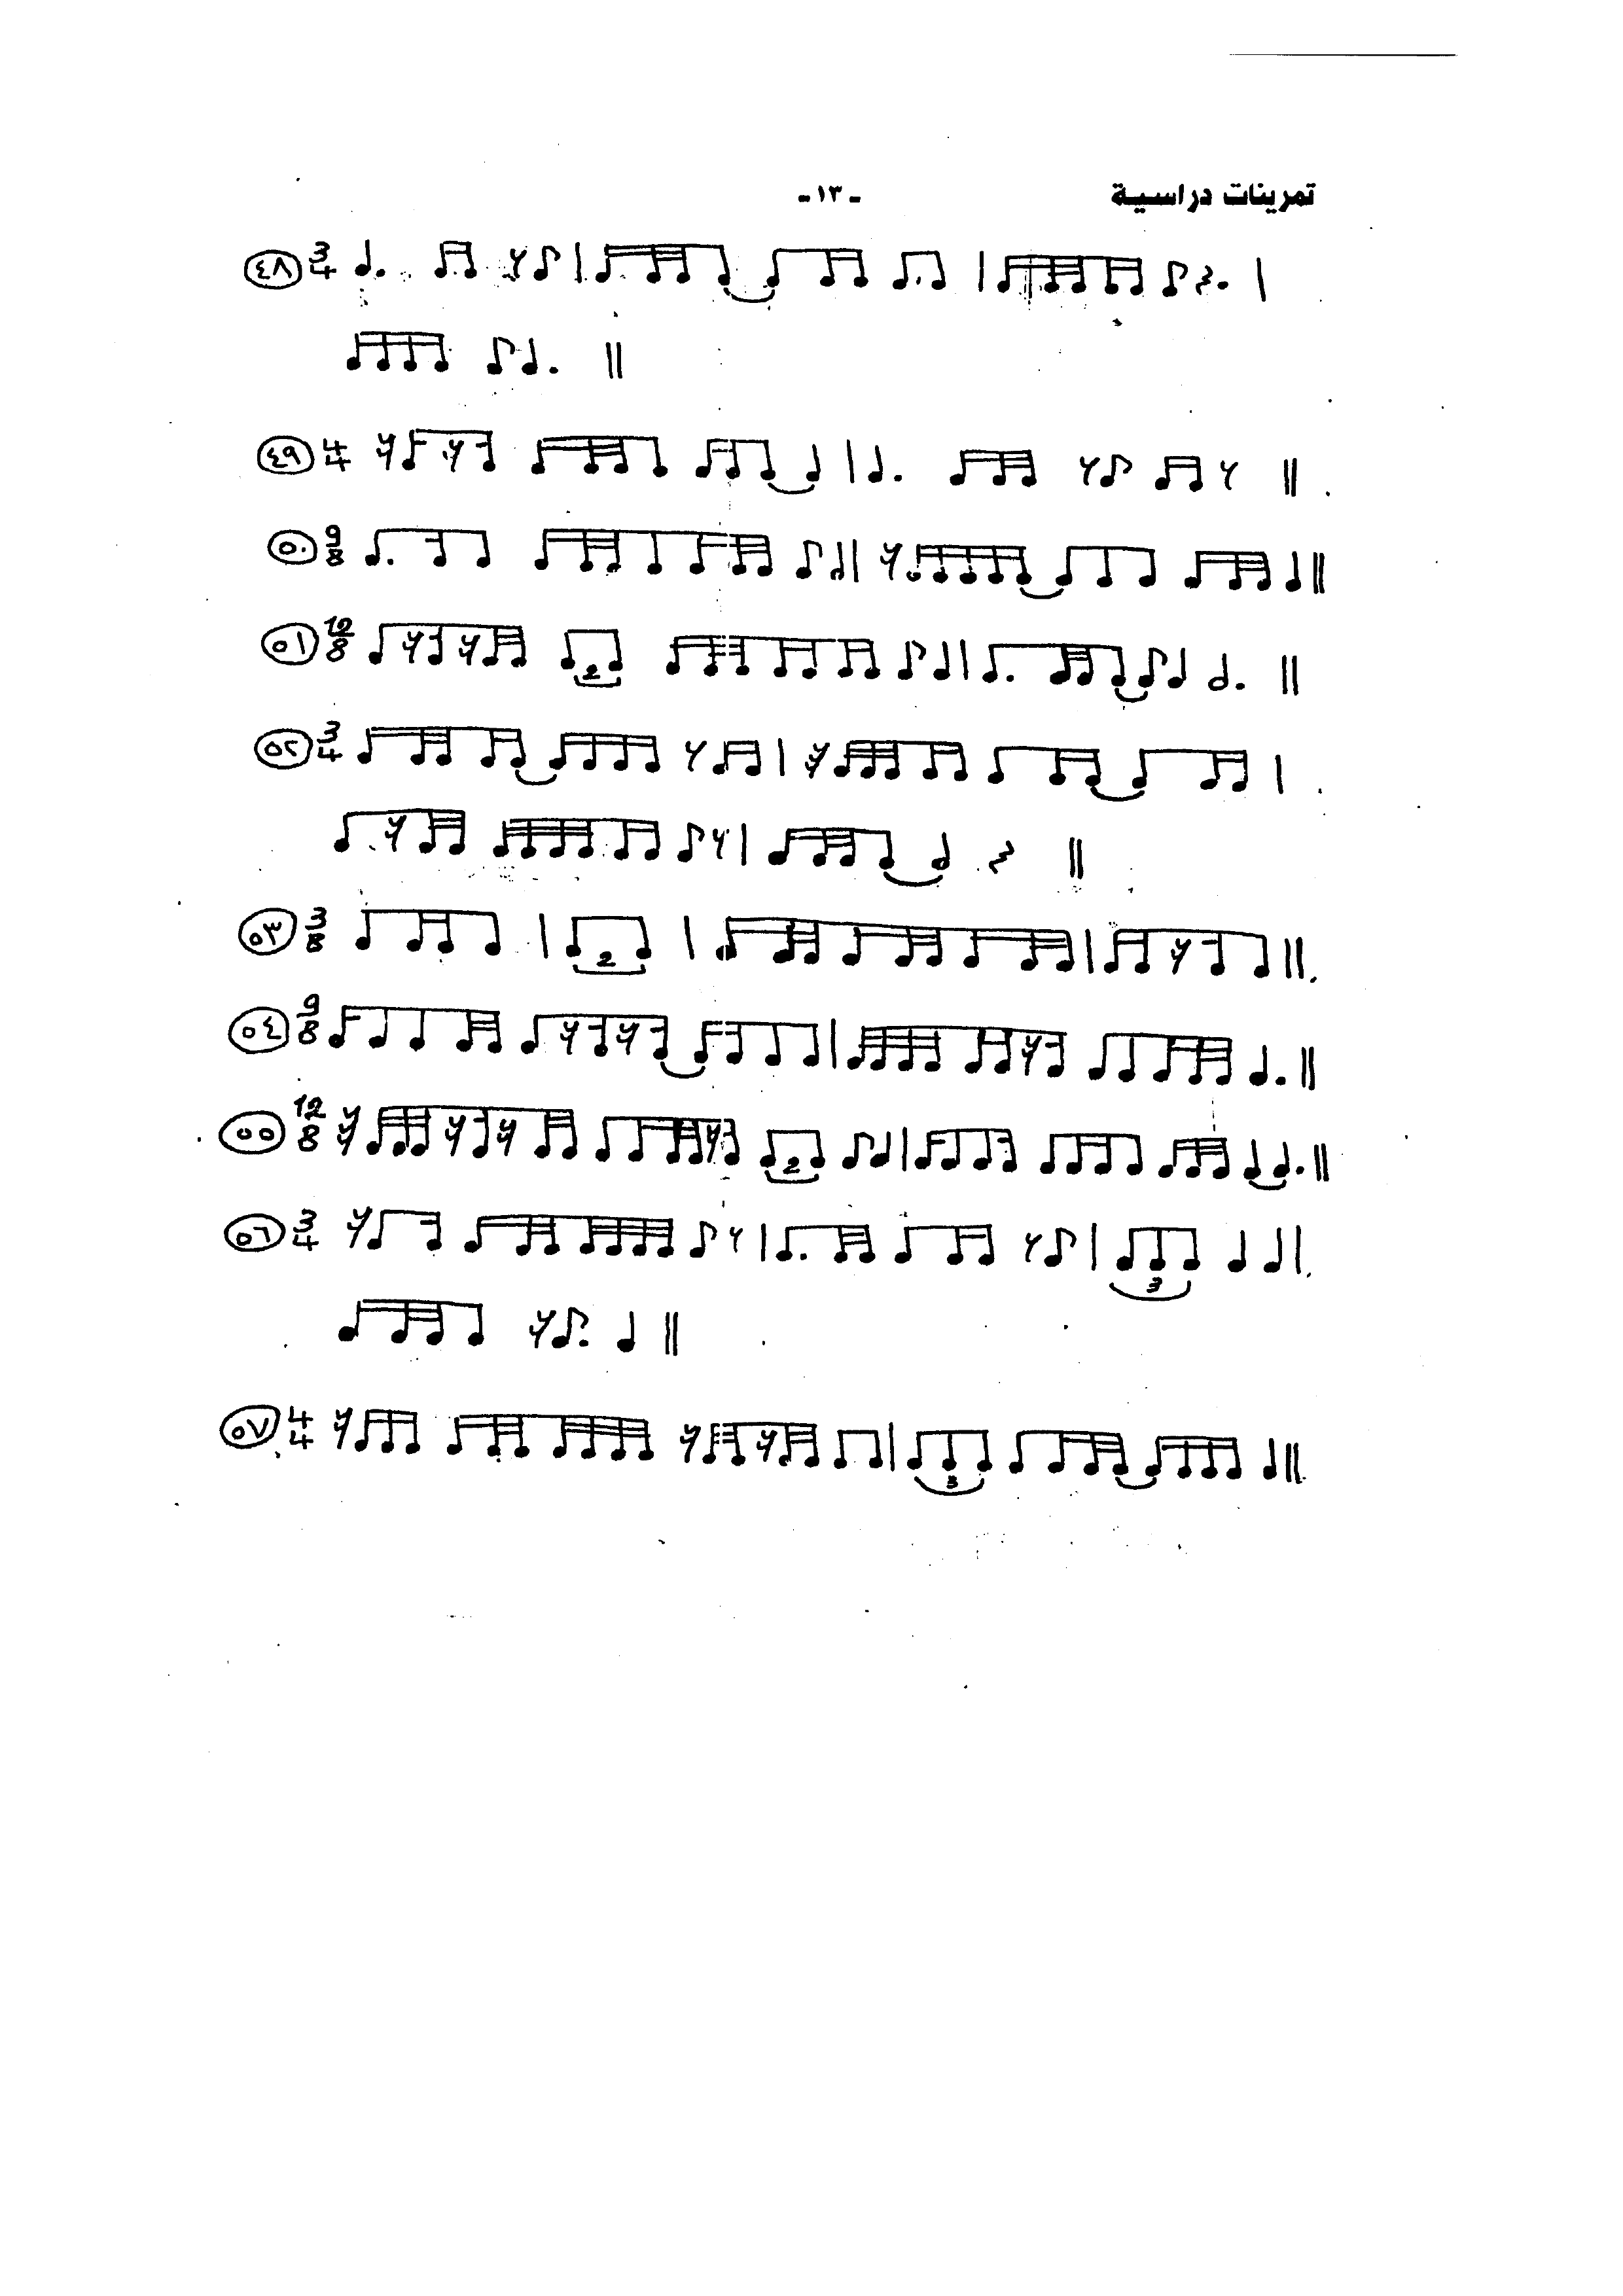 تمرينات دراسية - ١٣ -
٤٨ 3 4
٤٩ 4 4
٥٠ 9 8
٥١ 12 8 2
٥٢ 3 4
٥٣ 3 8 2
٥٤ 9 8
٥٥ 12 8 2
٥٦ 3 4 3
٥٧ 4 4 3